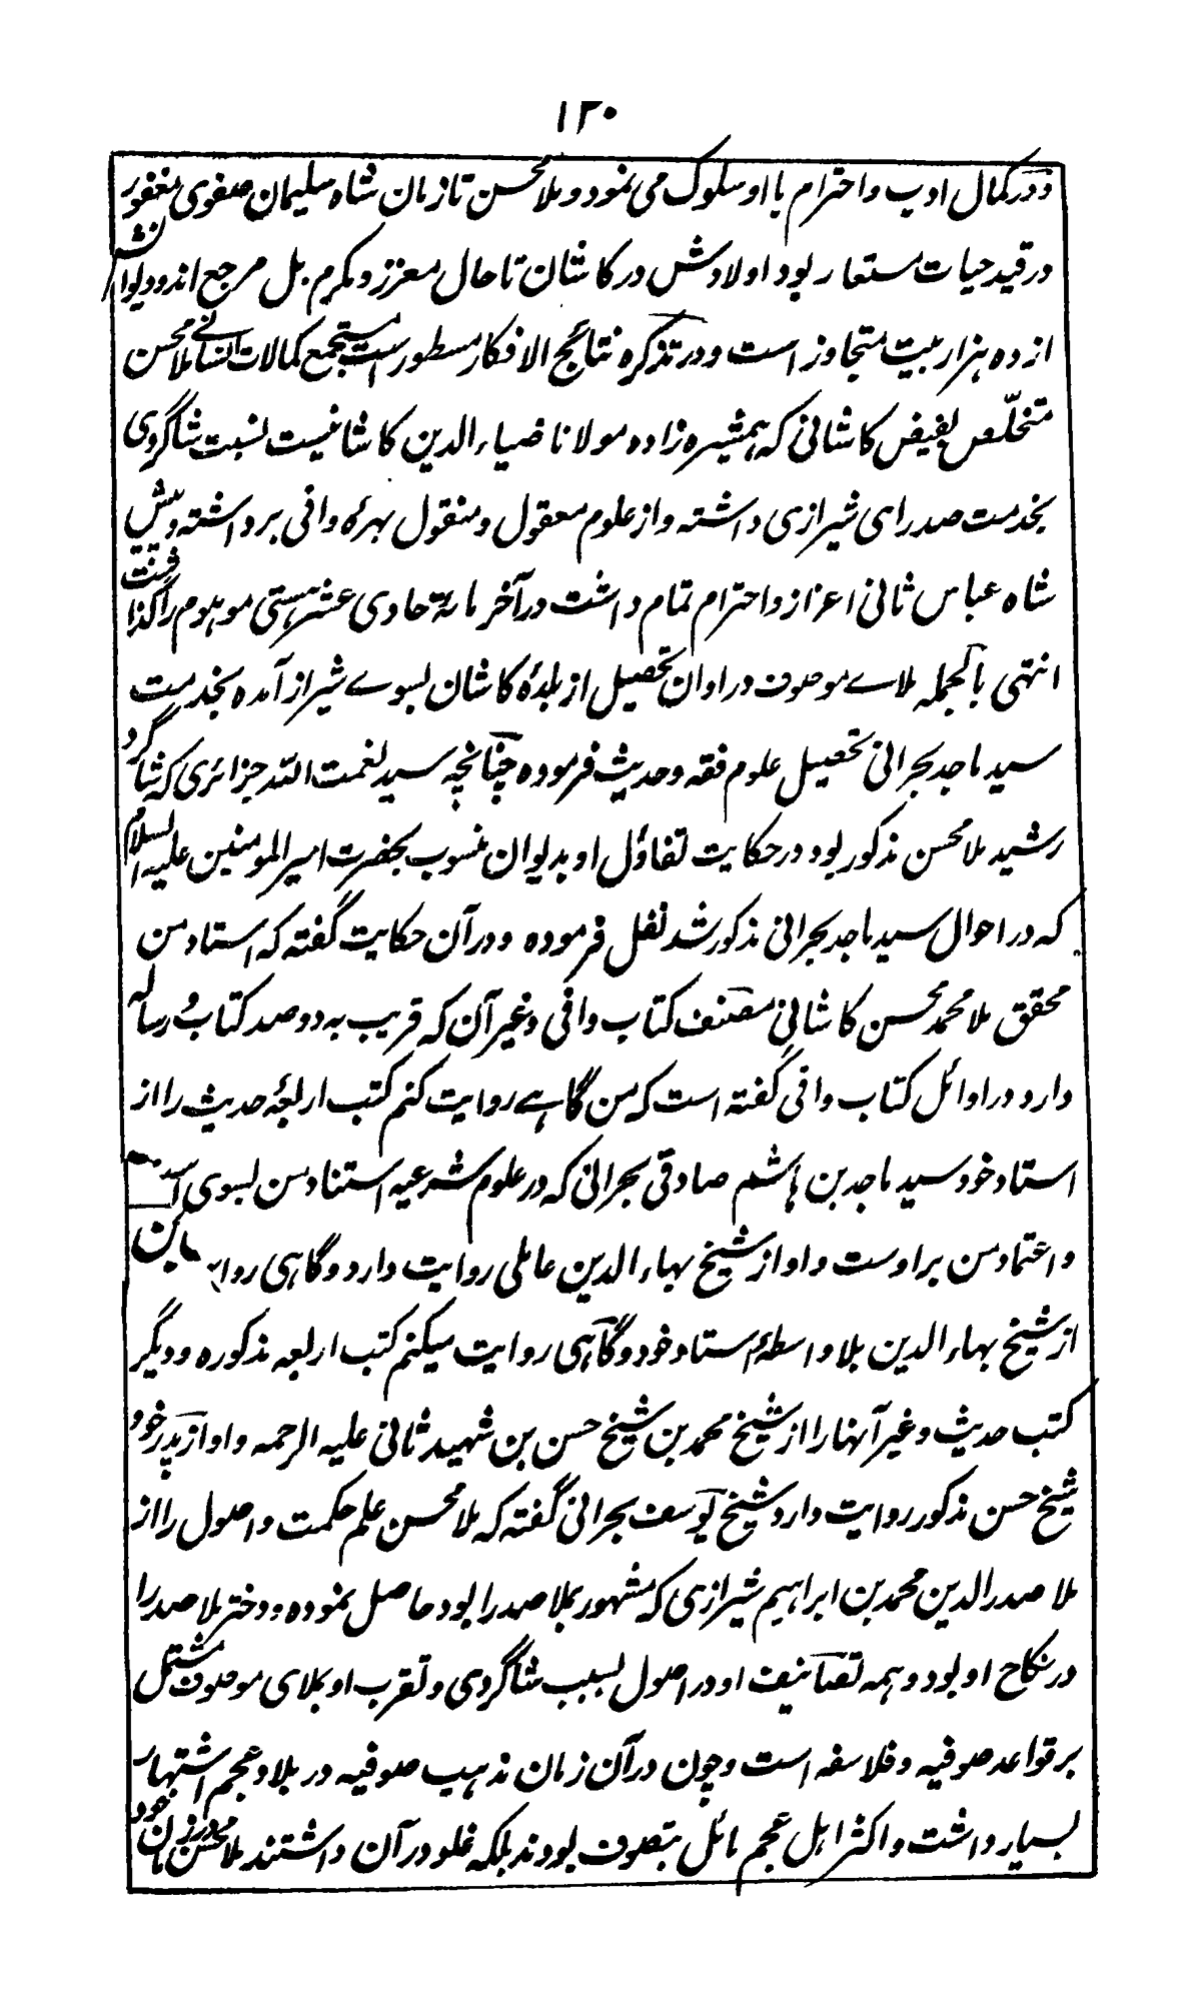 ۱۲۰
و در کمال ادب و احترام با او سلوک می نمود و ملا محسن تا زمان شاه سلیمان صفوی مغفور
در قید حیات مستعار بود اولادش در کاشان تا حال معزز و مکرم بل مرجع اند و دیوانش
از ده هزار بیت متجاوز است و در تذکره نتائج الافکار مسطور است مستجمع کمالات انسانے ملا محسن
متخلّص بفیض کاشانی که همشیره زاده مولانا ضیاء الدین کاشانیست نسبت شاگردی
بخدمت صدرای شیرازی داشته و از علوم معقول و منقول بهرهٔ وافی برداشته و پیش
شاه عباس ثانی اعزاز و احترام تمام داشت در آخر مائة حادی عشر هستی موهوم را گذا
انتهی بالجمله ملاے موصوف در اوان تحصیل از بلدهٔ کاشان بسوے شیراز آمده بخدمت
سید ماجد بحرانی تحصیل علوم فقه و حدیث فرموده چنانچه سید نعمت الله جزائری که شاگرد
رشید ملا محسن مذکور بود در حکایت تفاؤل او بدیوان منسوب بحضرت امیر المومنین علیه السلام
که در احوال سید ماجد بحرانی مذکور شد نقل فرموده و در آن حکایت گفته که استاد من
محقق ملا محمد محسن کاشانی مصنف کتاب وافی و غیر آن که قریب به دو صد کتاب و رساله
دارد در اوائل کتاب وافی گفته است که من گاہے روایت کنم کتب اربعهٔ حدیث را از
استاد خود سید ماجد بن هاشم صادقی بحرانی که در علوم شرعیه استناد من بسوی
و اعتماد من بر اوست و او از شیخ بهاء الدین عاملی روایت دارد و گاهی
از شیخ بهاء الدین بلا واسطهٔ استاد خود و گاهی روایت میکنم کتب اربعه مذکوره و دیگر
کتب حدیث و غیر آنها را از شیخ محمد بن شیخ حسن بن شهید ثانی علیه الرحمه و او از پدر خود
شیخ حسن مذکور روایت دارد و شیخ یوسف بحرانی گفته که ملا محسن علم حکمت و اصول را از
ملا صدر الدین محمد بن ابراهیم شیرازی که مشهور بملا صدرا بود حاصل نموده و دختر ملا صدرا
در نکاح او بود و همه تصانیف او در اصول بسبب شاگردی و تقرب او بملای موصوف مشتمل
بر قواعد صوفیه و فلاسفه است و چون در آن زمان مذهب صوفیه در بلاد عجم اشتهار
بسیار داشت و اکثر اهل عجم مائل بتصوف بودند بلکه غلو در آن داشتند ملا محسن در زمان خود